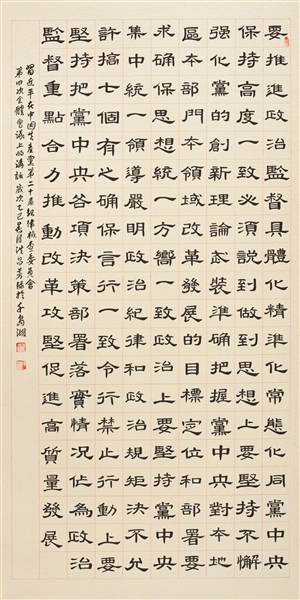 要推進政治監督具體化精準化常態化同黨中央
保持高度一致必須說到做到思想上要堅持不懈
强化黨的創新理論武裝準確把握黨中央對本地
區本部門本領域改革發展的目標定位和部署要
求確保思想統一方嚮一致政治上要堅持黨中央
集中統一領導嚴明政治紀律和政治規矩決不允
許搞七個有之確保行動一致令行禁止行動上要
堅持把黨中央各項決策部署落實情况作為政治
監督重點合力推動改革攻堅促進高質量發展
習近平在中國共產黨第二十屆紀律檢查委員會
第四次全體會議上的講話 歲次乙巳 於千島湖